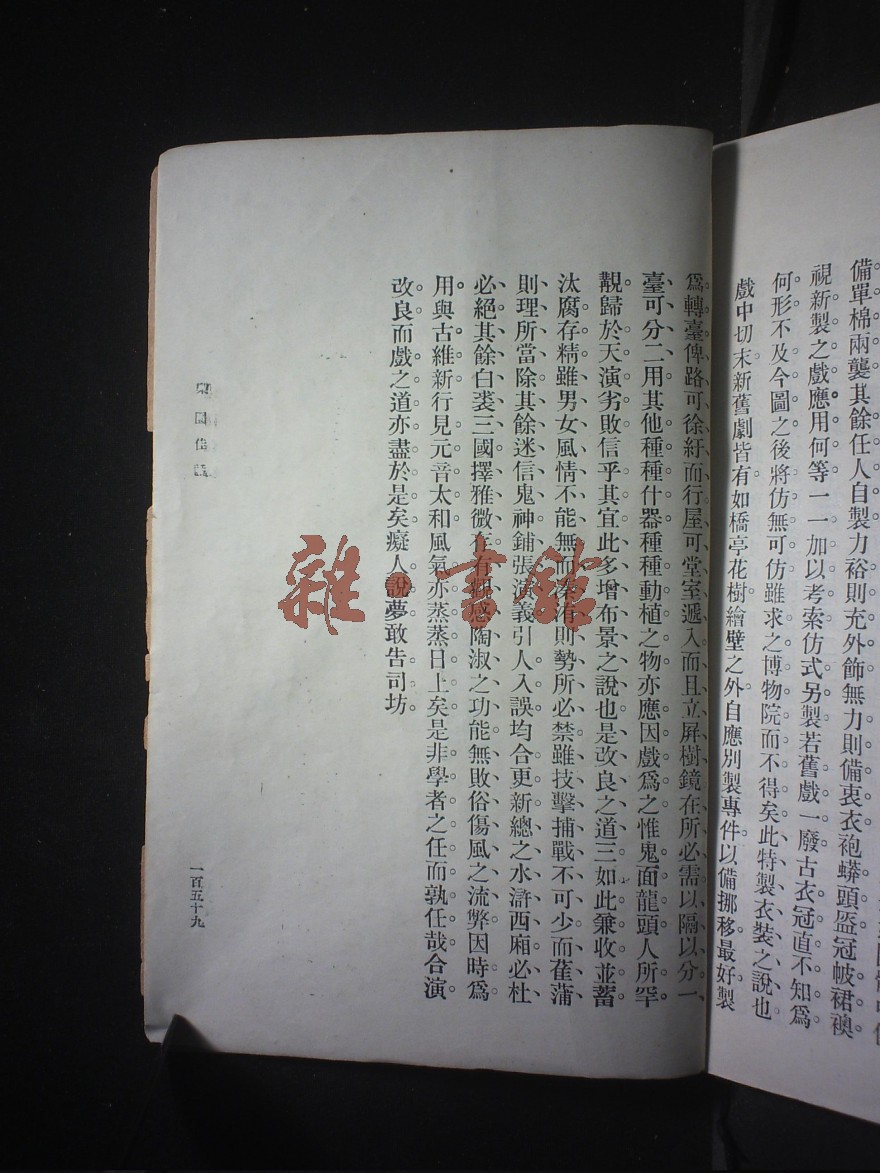 備單棉兩襲。其餘任人自製。力裕則充外飾。無力則備衷衣。袍蟒頭盔冠帔裙襖。
視新製之戲應用何等。一一加以考索。仿式另製。若舊戲一廢。古衣冠直不知爲
何形。不及今圖之。後將仿無可仿。雖求之博物院而不得矣。此特製衣裝之說也
戲中切末。新舊劇皆有。如橋亭花樹繪壁之外。自應別製專件。以備挪移。最好製
爲轉臺。俾路可徐紆而行。屋可堂室遞入。而且立屏樹鏡。在所必需。以隔以分。一
臺可分二用。其他種種什器。種種動植之物。亦應因戲爲之。惟鬼面龍頭。人所罕
覯。歸於天演劣敗。信乎其宜。此多增布景之說也。是改良之道三。如此兼收並蓄。
汰腐存精。雖男女風情不能無。而溱洧則勢所必禁。雖技擊捕戰不可少。而萑蒲
則理所當除。其餘迷信鬼神。鋪張演義。引人入誤。均合更新。總之水滸西廂必杜
必絕。其餘白裘三國。擇雅微在。有觀感陶淑之功能。無敗俗傷風之流弊。因時爲
用。與古維新。行見元音太和。風氣亦蒸蒸日上矣。是非學者之任而孰任哉。合演
改良。而戲之道亦盡於是矣。癡人說夢。敢告司坊。
一百五十九
雜·書館